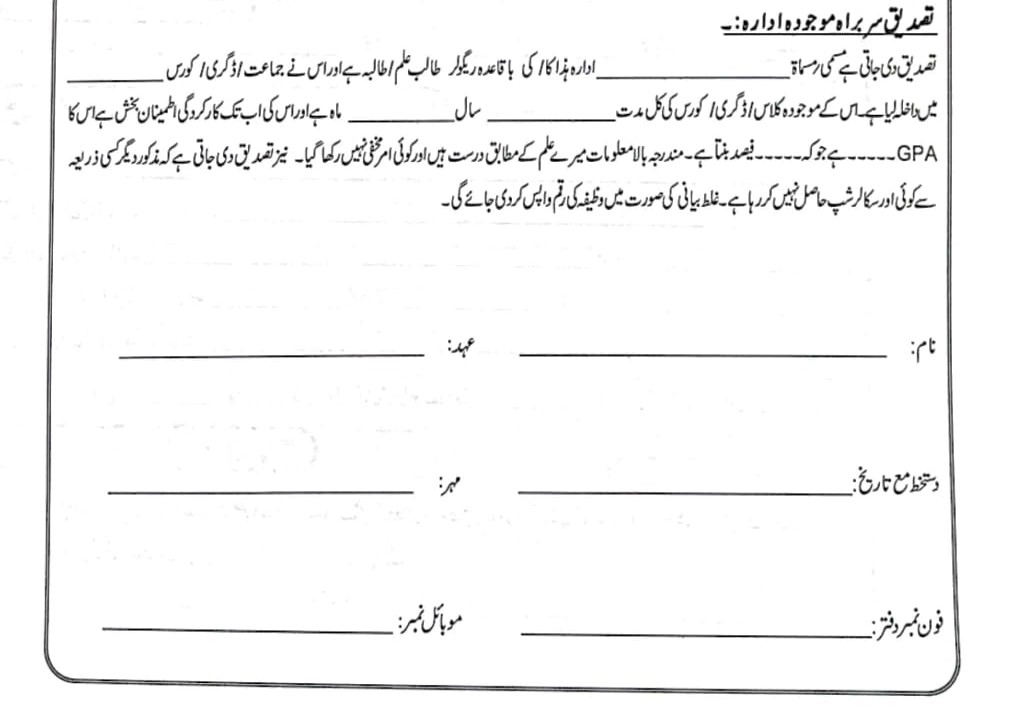 تصدیق سربراہ موجودہ ادارہ:۔
تصدیق دی جاتی ہے مسمی/مسماۃ____________________ادارہ ہذا کا/کی باقاعدہ ریگولر طالب علم/طالبہ ہے اور اس نے جماعت/ڈگری/کورس __________
میں داخلہ لیا ہے۔اس کے موجودہ کلاس/ڈگری/کورس کی کل مدت_____________سال__________ ماہ ہے اور اس کی اب تک کارکردگی اطمینان بخش ہے اس کا
GPA-----ہے جو کہ-----فیصد بنتا ہے۔مندرجہ بالا معلومات میرے علم کے مطابق درست ہیں اور کوئی امر مخفی نہیں رکھا گیا۔ نیز تصدیق دی جاتی ہے کہ مذکور دیگر کسی ذریعہ
سے کوئی اور سکالرشپ حاصل نہیں کر رہا ہے۔غلط بیانی کی صورت میں وظیفہ کی رقم واپس کر دی جائے گی۔
نام: ____________________ عہد: ____________________
دستخط مع تاریخ:____________________ مہر: ____________________
فون نمبر دفتر:____________________ موبائل نمبر:____________________